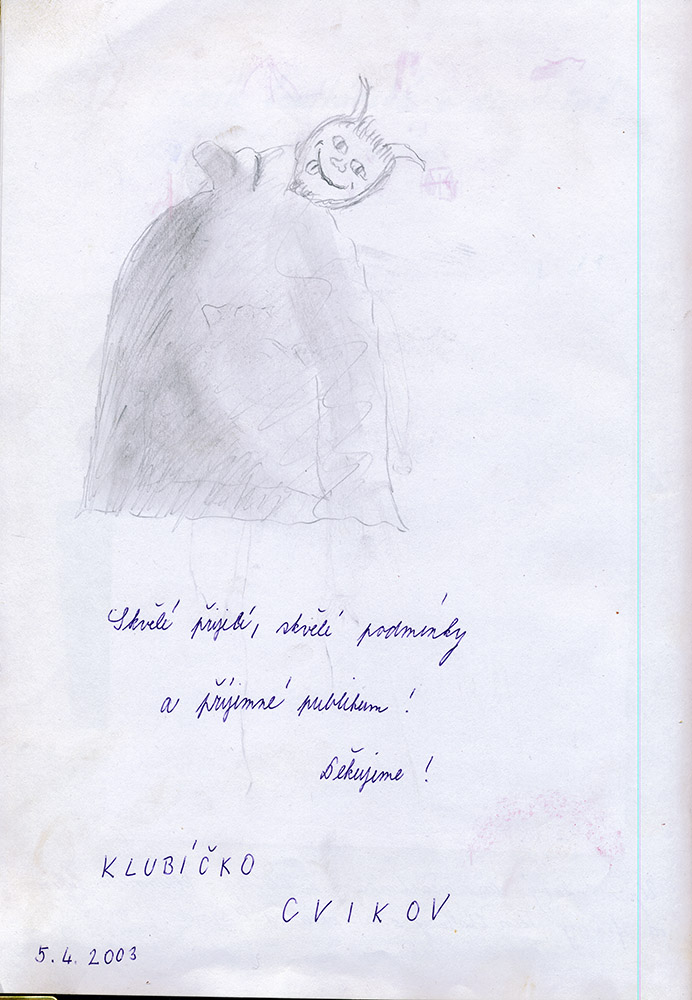 Skvělí přijetí, skvělé podmínky
a příjemné publikum!
Děkujeme!
KLUBÍČKO
CVIKOV
5.4.2003